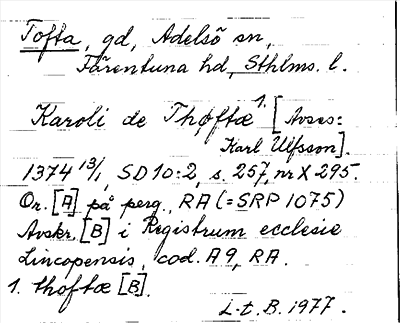 Tofta, gd, Adelsö sn,
Färentuna hd, Sthlms. l.
Karoli de Thoftæ 1. [Avses:
Karl Ulfsson].
1374 13/1, SD 10:2, s. 257, nr X 295.
Or. [A] på perg., RA (=SRP 1075)
Avskr. [B] i Registrum ecclesie
Lincopensis, cod. A 9, RA.
1. thoftæ [B].
L.t.B. 1977.